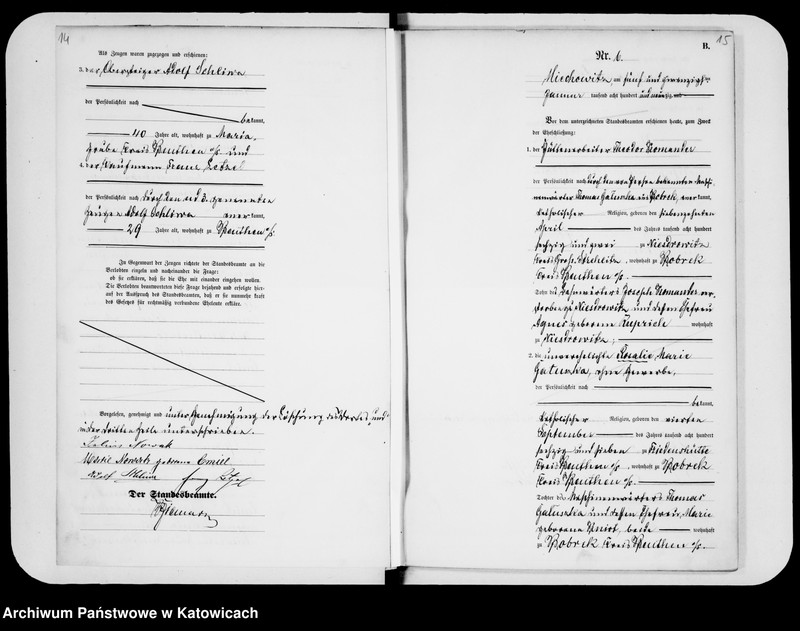 14
Als Zeugen waren zugezogen und erschienen:
3. der Obersteiger Adolf Schliwa
der Persönlichkeit nach
bekannt,
40 Jahre alt, wohnhaft zu Maria-
grube Kreis Beuthen o/s und
4. der Kaufmann Franz
der Persönlichkeit nach durch den ad 3. genannten
Zeugen Adolf Schliwa anerkannt,
29 Jahre alt, wohnhaft zu Beuthen o/s.
In Gegenwart der Zeugen richtete der Standesbeamte an die
Verlobten einzeln und nacheinander die Frage:
ob sie erklären, daß sie die Ehe mit einander eingehen wollen.
Die Verlobten beantworteten diese Frage bejahend und erfolgte hier-
auf der Ausspruch des Standesbeamten, daß er sie nunmehr kraft
des Gesetzes für rechtmäßig verbundene Eheleute erkläre.
Vorgelesen, genehmigt und unter Genehmigung der Löschung
in der dritten Zeile unterschrieben.
Julius Nowak
Nowak geborene
Adolf Schliwa Franz
Der Standesbeamte.
15
B.
Nr. 6.
Miechowitz am fünf und zwanzigsten
Januar tausend acht hundert und neunzig
Vor dem unterzeichneten Standesbeamten erschienen heute, zum Zweck
der Eheschließung:
1. der Hüttenarbeiter Theodor Komander
der Persönlichkeit nach durch den von Person bekannten Maschi-
nenwärter Thomas Galuschka aus Bobrek, anerkannt,
katholischer Religion, geboren den siebenzehnten
April des Jahres tausend acht hundert
sechzig und zwei zu Niesdrowitz
Kreis Groß Strehlitz, wohnhaft zu Bobrek
Kreis Beuthen o/s
Sohn des Bahnwärters Joseph Komander ver-
storben zu Niesdrowitz und dessen Ehefrau
Agnes geborene wohnhaft
zu Niesdrowitz,
2. die unverehelichte Rosalie Marie
Galuschka, ohne Gewerbe,
der Persönlichkeit nach
bekannt,
katholischer Religion, geboren den vierten
September des Jahres tausend acht hundert
sechzig und sieben zu Friedenshütte
Kreis Beuthen o/s, wohnhaft zu Bobrek
Kreis Beuthen o/s
Tochter des Maschinenwärters Thomas
Galuschka und dessen Ehefrau Marie
geborene beide wohnhaft
zu Bobrek Kreis Beuthen o/s.
Archiwum Państwowe w Katowicach